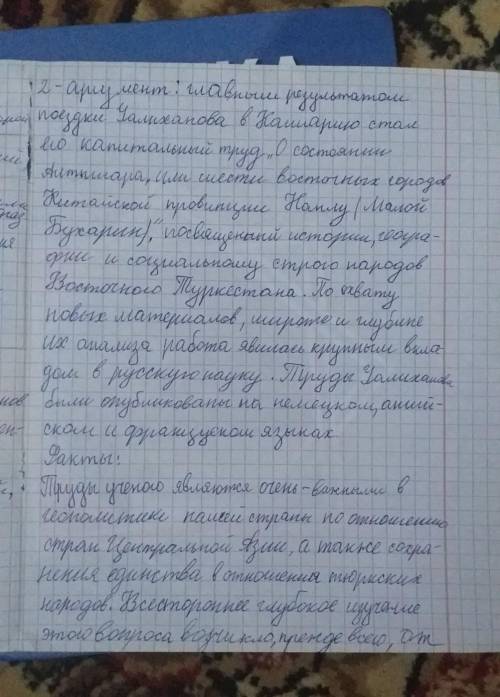 2-аргумент: главным результатом
поездки Уалиханова в Кашгарию стал
его капитальный труд „О состоянии
Алтышара, или шести восточных городов
Китайской провинции Нанлу (Малой
Бухарии)", посвященый истории, геогра-
фии и социальному строю народов
Восточного Туркестана. По охвату
новых материалов, широте и глубине
их анализа работа явилась крупным вкла-
дом в русскую науку. Труды Уалиханова
были опубликованы на немецком, англий-
ском и французском языках
Факты:
Труды ученого являются очень-важными в
геополитике нашей страны по отношению
стран Центральной Азии, а также сохра-
нения единства в отношении тюркских
народов. Всестороннее глубокое изучение
этого вопроса возникло, прежде всего, от